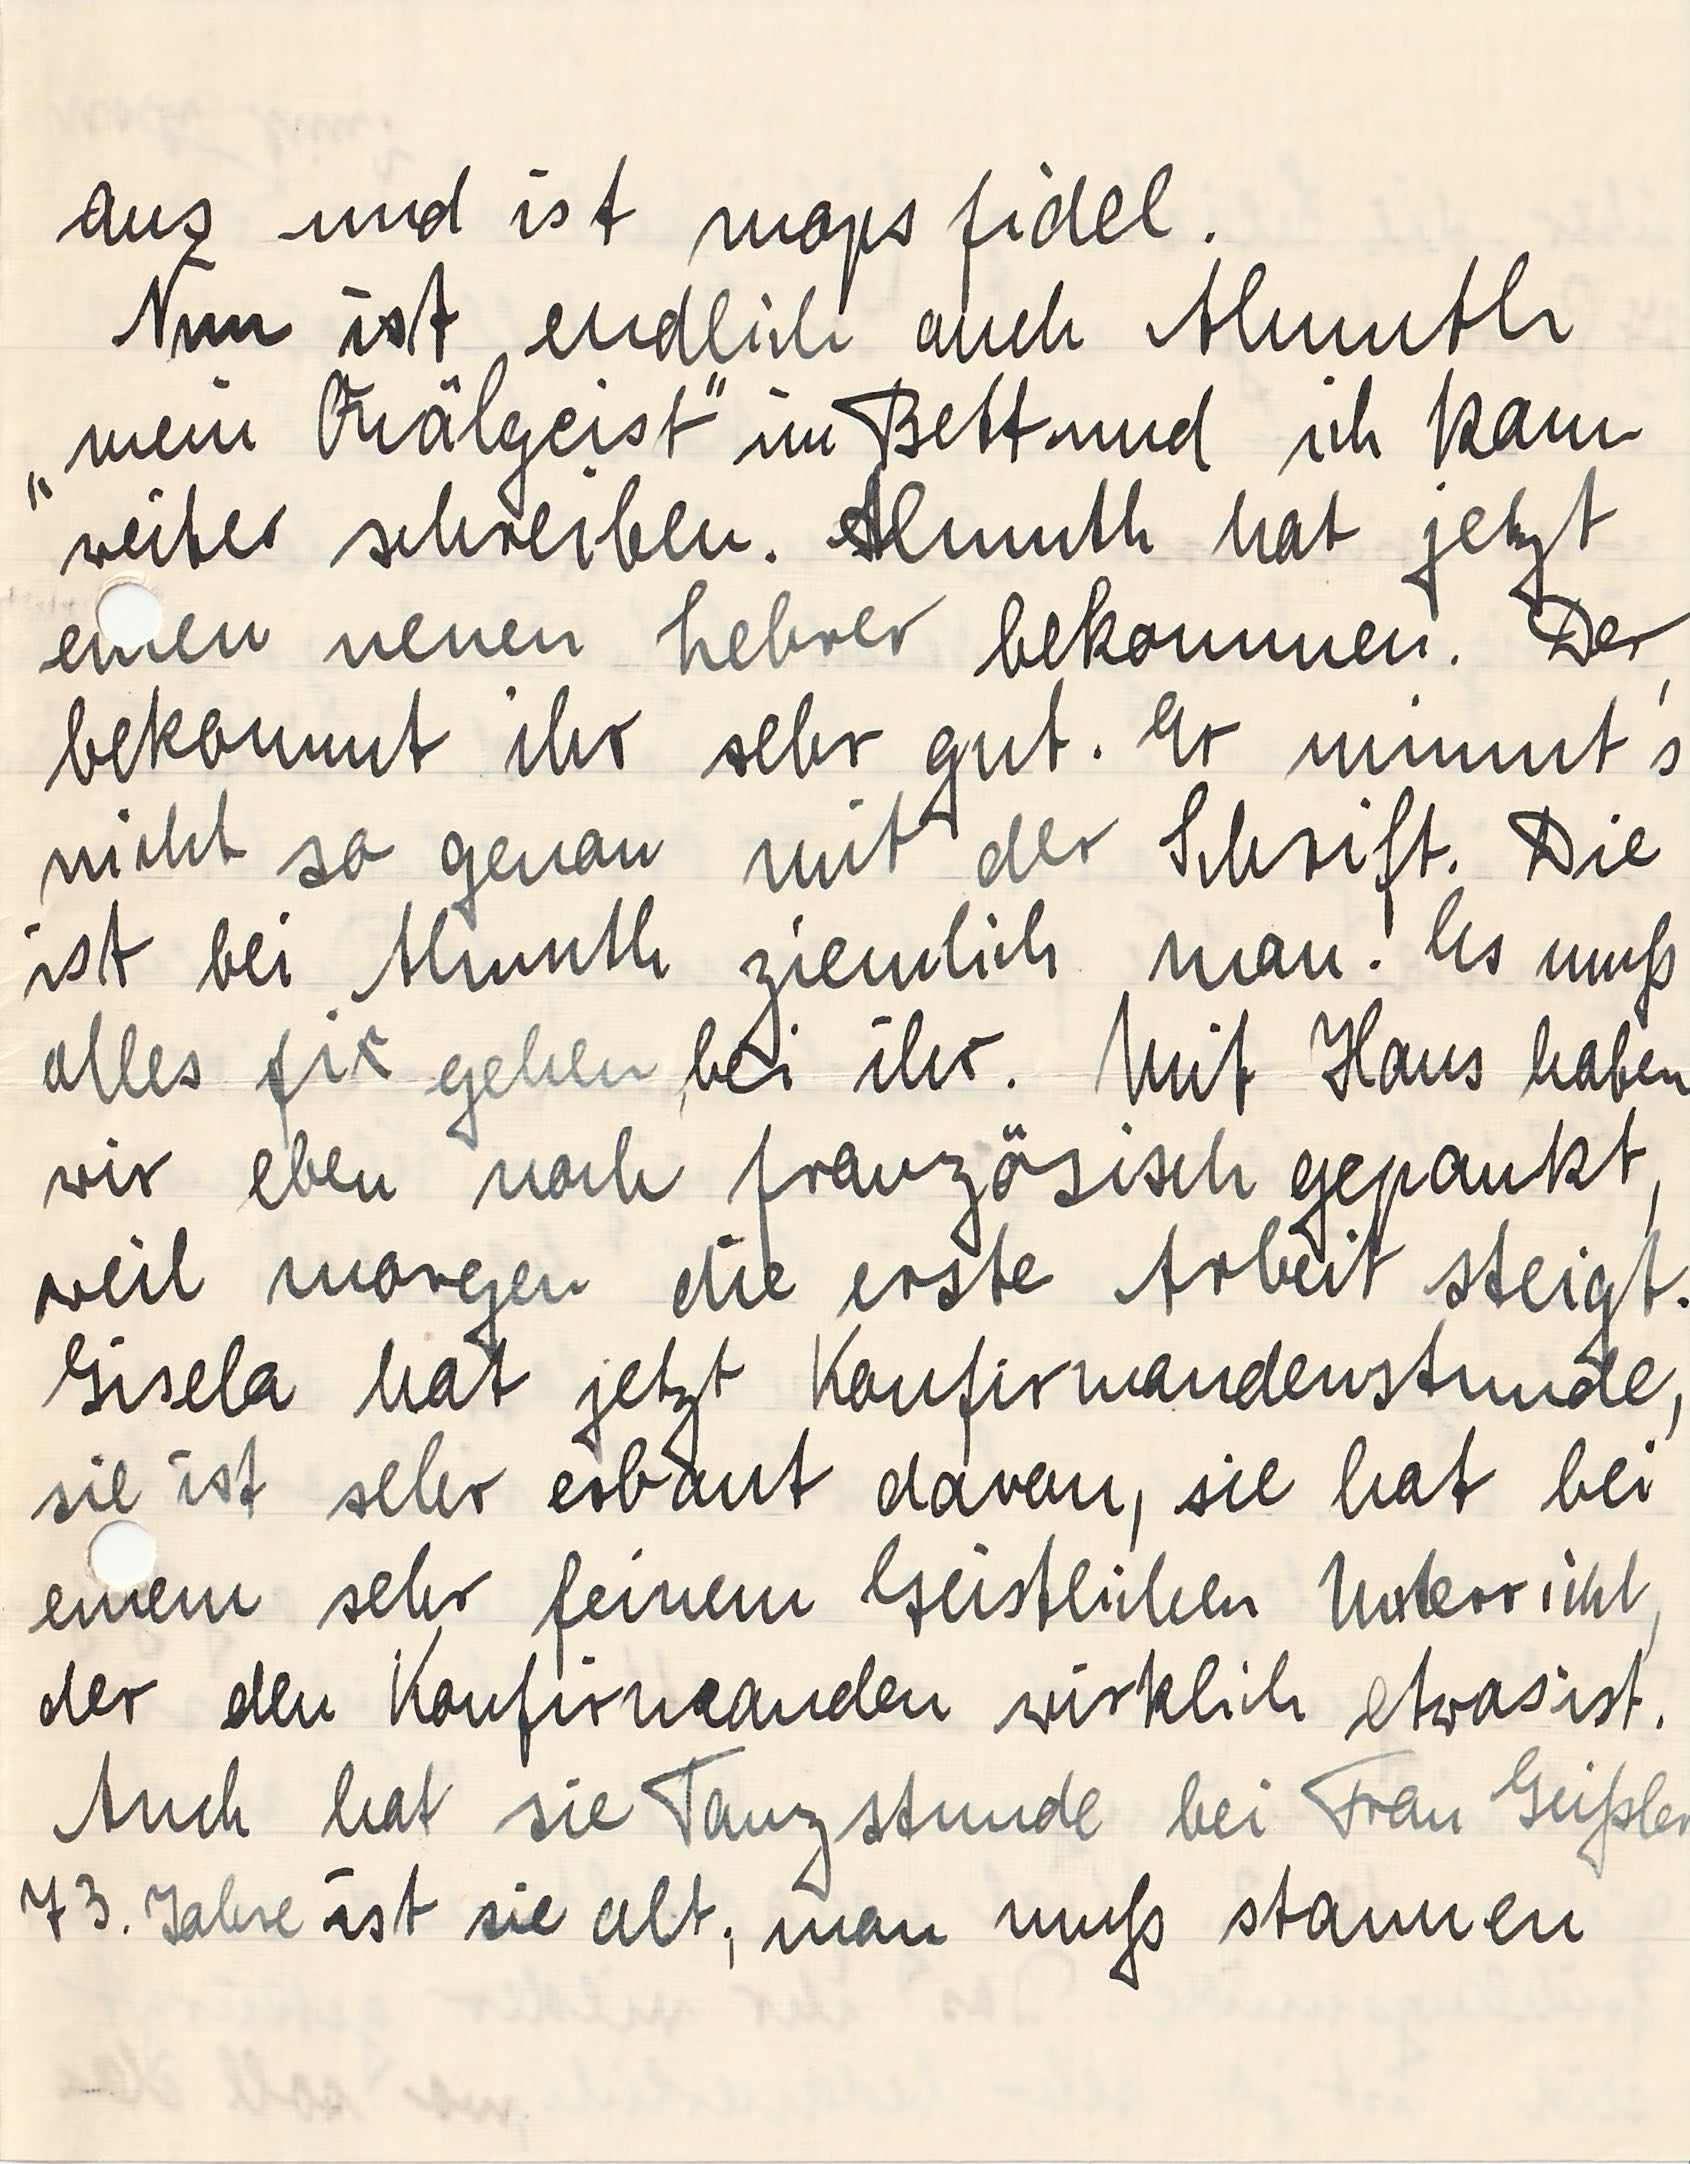 aus und ist mopsfidel.
Nun ist endlich auch Almuth
„mein Quälgeist" im Bett und ich kann
weiter schreiben. Almuth hat jetzt
einen neuen Lehrer bekommen. Der
bekommt ihr sehr gut. Er nimmt's
nicht so genau mit der Schrift. Die
ist bei Almuth ziemlich mau. Es muß
alles fix gehen bei ihr. Mit Hans haben
wir eben noch französisch gepaukt,
weil morgen die erste Arbeit steigt.
Gisela hat jetzt Konfirmandenstunde,
sie ist sehr erbaut davon, sie hat bei
einem sehr feinem Geistlichen Unterricht,
der den Konfirmanden wirklich etwas ist.
Auch hat sie Tanzstunde bei Frau Geißler
73. Jahre ist sie alt, man muß staunen